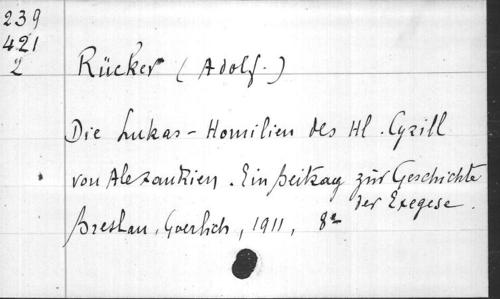 239
421
2
Rücker (Adolf.)
Die Lukas-Homilien des Hl. Cyrill
von Alexandrien. Ein Beitrag zur Geschichte
der Exegese.
Breslau, Goerlich, 1911, 8º